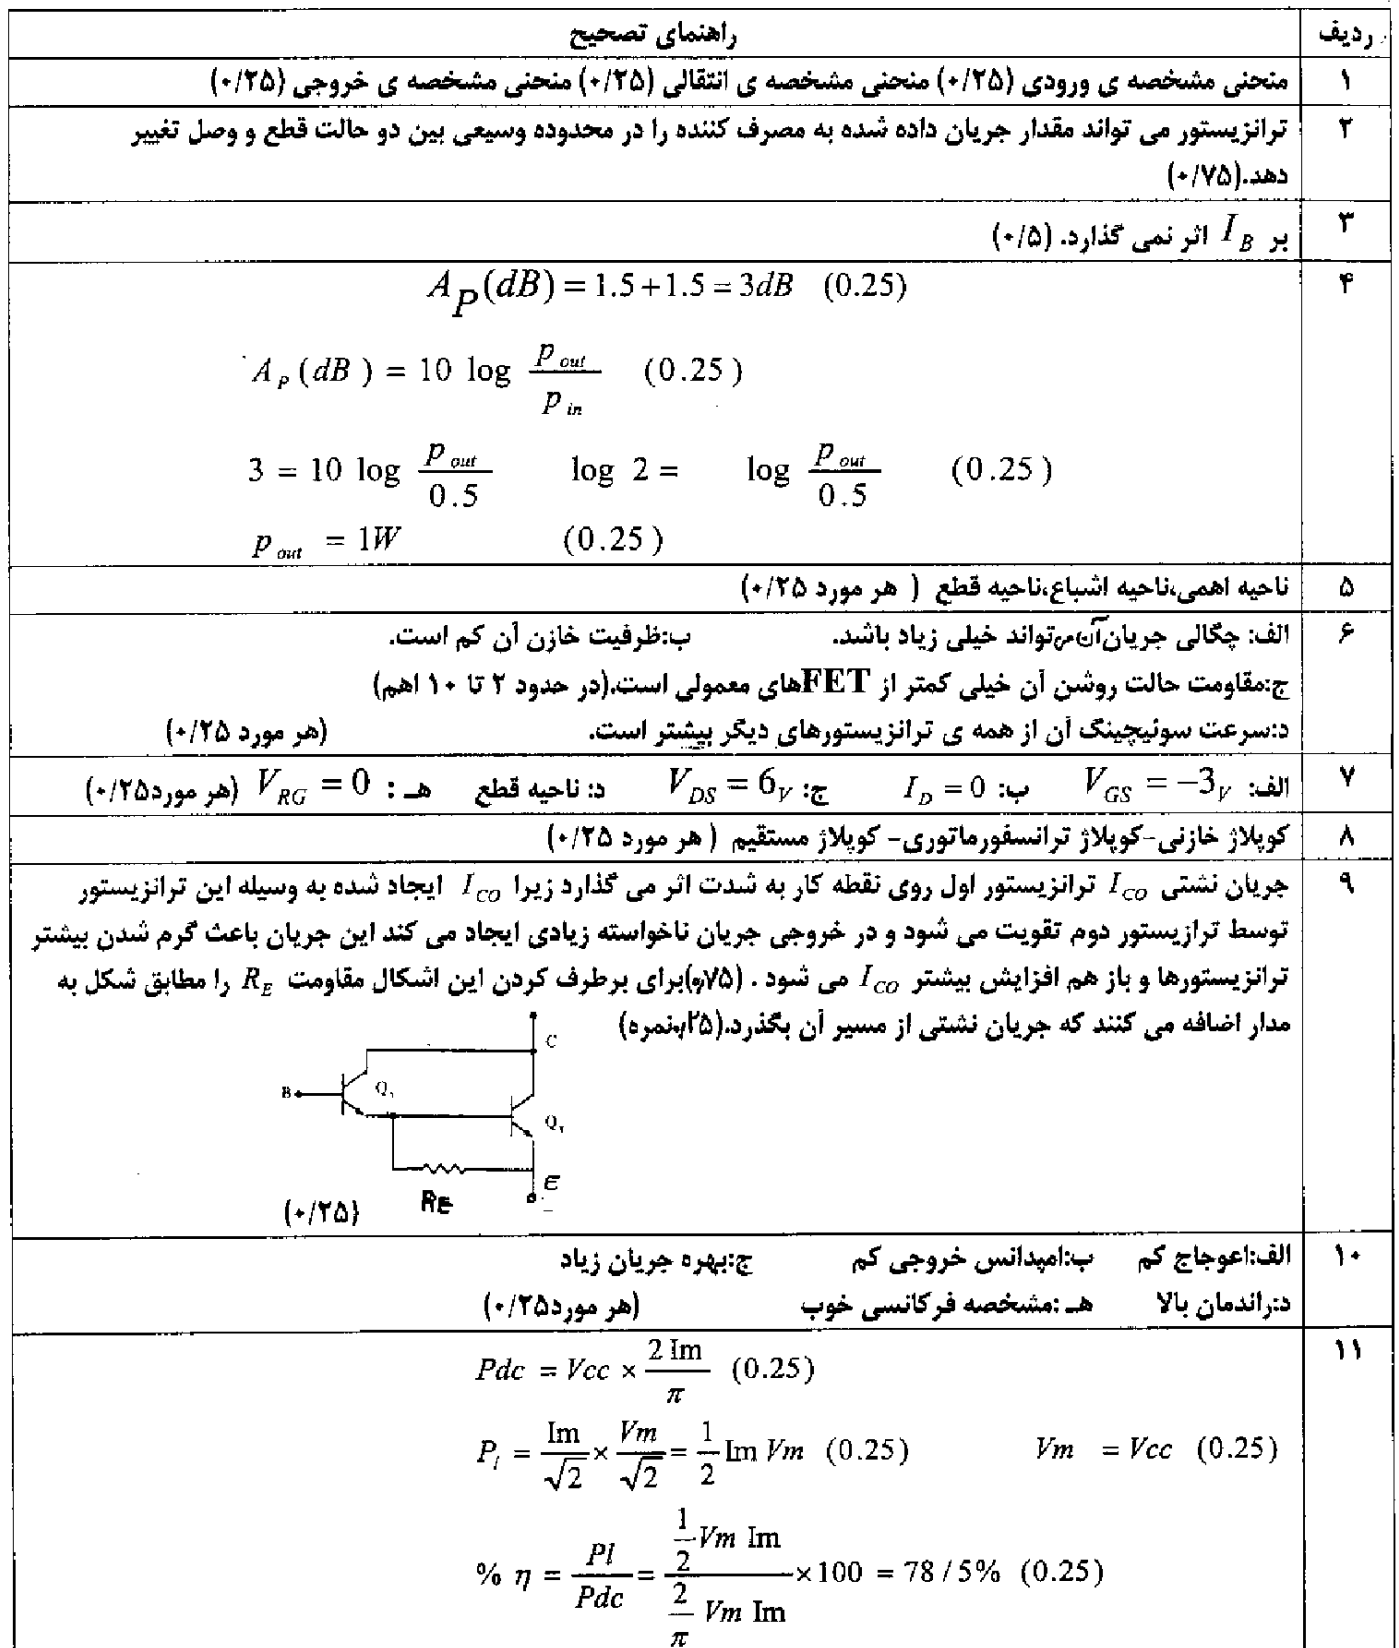 ردیف راهنمای تصحیح
۱ منحنی مشخصه ی ورودی (۰/۲۵) منحنی مشخصه ی انتقالی (۰/۲۵) منحنی مشخصه ی خروجی (۰/۲۵)
۲ ترانزیستور می تواند مقدار جریان داده شده به مصرف کننده را در محدوده وسیعی بین دو حالت قطع و وصل تغییر
دهد.(۰/۷۵)
۳ بر I_B اثر نمی گذارد. (۰/۵)
۴ A_P(dB) = 1.5 + 1.5 = 3dB (0.25)
A_P (dB) = 10 log p_out / p_in (0.25)
3 = 10 log p_out / 0.5 log 2 = log p_out / 0.5 (0.25)
p_out = 1W (0.25)
۵ ناحیه اهمی،ناحیه اشباع،ناحیه قطع ( هر مورد ۰/۲۵)
۶ الف: چگالی جریان آن می‌تواند خیلی زیاد باشد. ب:ظرفیت خازن آن کم است.
ج:مقاومت حالت روشن آن خیلی کمتر از FETهای معمولی است.(در حدود ۲ تا ۱۰ اهم)
د:سرعت سوئیچینگ آن از همه ی ترانزیستورهای دیگر بیشتر است. (هر مورد ۰/۲۵)
۷ الف: V_GS = −3_V ب: I_D = 0 ج: V_DS = 6_V د: ناحیه قطع هـ : V_RG = 0 (هر مورد۰/۲۵)
۸ کوپلاژ خازنی-کوپلاژ ترانسفورماتوری- کوپلاژ مستقیم ( هر مورد ۰/۲۵)
۹ جریان نشتی I_CO ترانزیستور اول روی نقطه کار به شدت اثر می گذارد زیرا I_CO ایجاد شده به وسیله این ترانزیستور
توسط ترازیستور دوم تقویت می شود و در خروجی جریان ناخواسته زیادی ایجاد می کند این جریان باعث گرم شدن بیشتر
ترانزیستورها و باز هم افزایش بیشتر I_CO می شود . (۰/۷۵)برای برطرف کردن این اشکال مقاومت R_E را مطابق شکل به
مدار اضافه می کنند که جریان نشتی از مسیر آن بگذرد.(۰/۲۵نمره)
C
B Q₁
Q₂
RE E
(۰/۲۵)
۱۰ الف:اعوجاج کم ب:امپدانس خروجی کم ج:بهره جریان زیاد
د:راندمان بالا هـ :مشخصه فرکانسی خوب (هر مورد۰/۲۵)
۱۱ Pdc = Vcc × 2 Im / π (0.25)
P_l = Im / √2 × Vm / √2 = 1/2 Im Vm (0.25) Vm = Vcc (0.25)
% η = Pl / Pdc = (1/2 Vm Im) / (2/π Vm Im) × 100 = 78 / 5% (0.25)